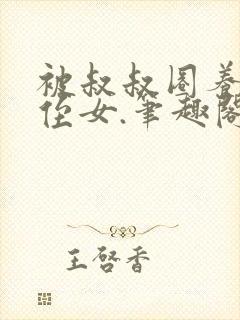 被叔叔圈养
侄女.笔趣阁
王啓香